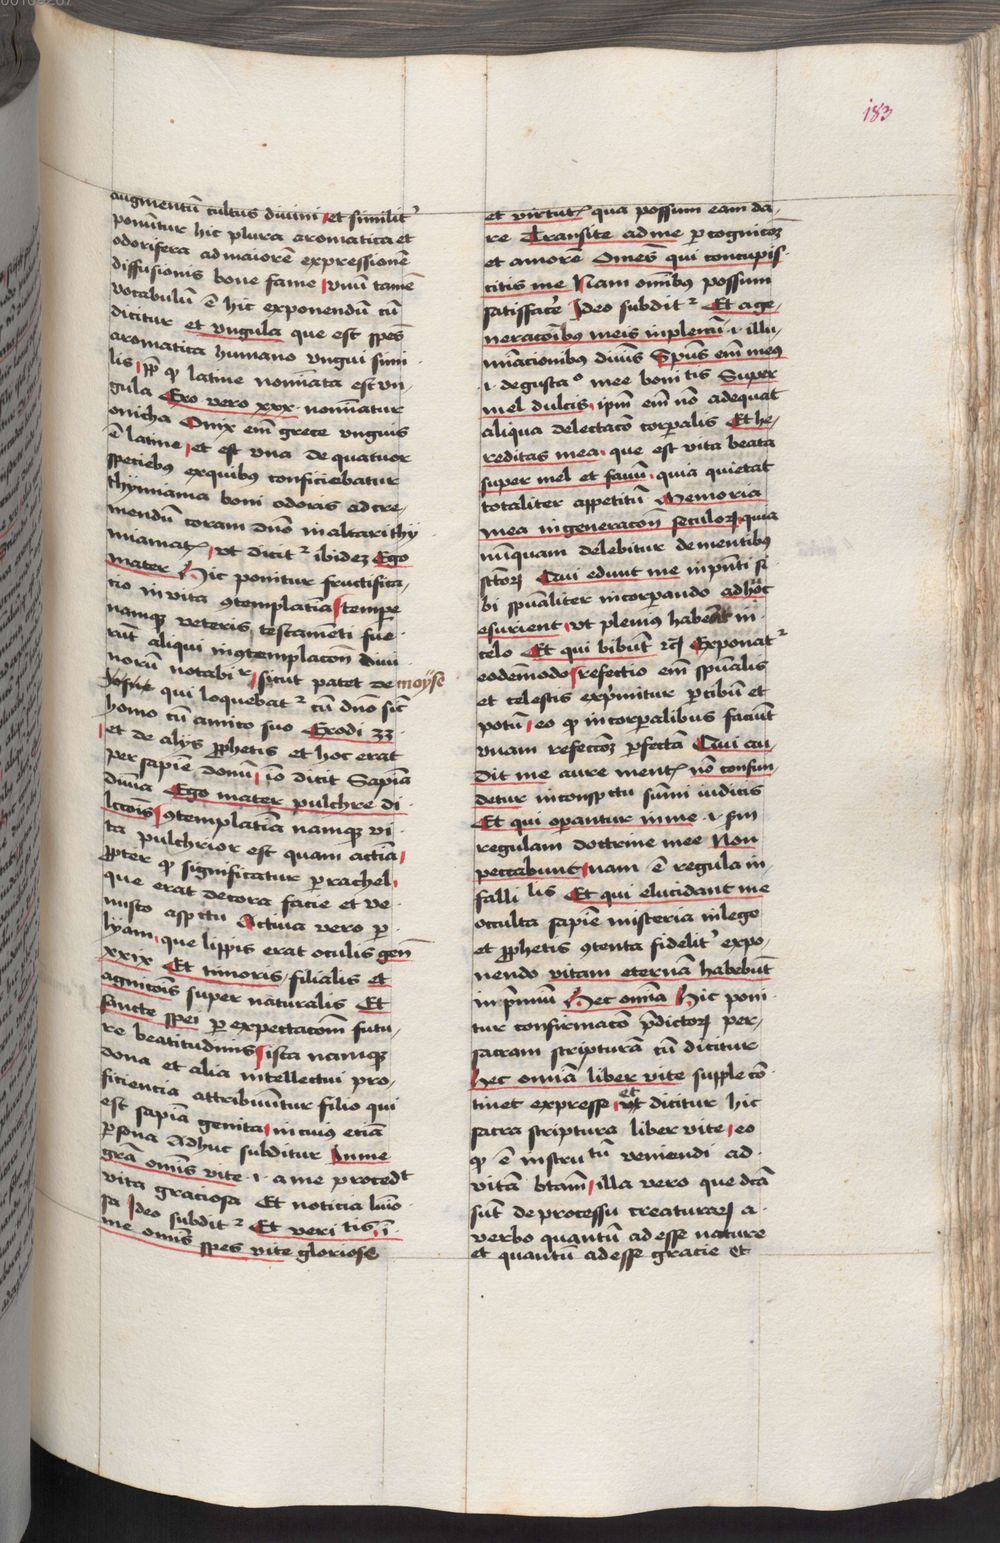 183
augmentū cultus diuini et similit᷑
ponūtur hic plura aromatica et
odorifera ad maiorē expressionē
diffusionis bone fame vnū tamē
vocabulū ē hic exponendū cū
dicitur et vngula que est spēs
aromatica humano vngui simi
lis ꝓp̄ ꝙ latine nomīata est vn
gula Exo vero xxx nomīatur
onicha Onix em̄ grece vnguis
ē latine et est vna de quatuor
speciebꝰ ex quibꝰ conficiebatur
thymiama boni odoris ad cre
mandū coram dn̄o in altari thy
miamatꝭ vt dicit᷑ ibidez Ego
mater Hic ponitur fructifica
cio in vita ꝯtemplatīa tempe
namqꝫ veteris testamenti fue
rūt aliqui in ꝯtemplacōn diui
norū notabi r sicut patet de moyse
Josue qui loquebat᷑ cū dn̄o sic̄
homo cū amico suo Exodi 33
et de alijs ꝓphetis et hoc erat
per sapiē donū iō dicit Sapīa
diuīa Ego mater pulchre di
lccōis ꝯtemplatīa namqꝫ vi
ta pulchrior est quam actīa
ꝓpter ꝙ significatur ꝑ rachel
que erat decora facie et ve
nusto aspectu Actiua vero ꝑ
lyam que lippis erat oculis gen̄
xxix Et timoris filialis et
agnicōis super naturalis Et
sancte spei ꝑ expectacōm̄ futu
re beatitudinis ista namqꝫ
dona et alia intellectui pro
ficiencia attribuūtur filio qui
est sapīa genita in cuius eciā
ꝑsona Adhuc subditur In me
grā om̄is vite .i. a me procedt
vita graciosa Et noticia lūio
sa Ideo subdit᷑ Et veri tis ī
me om̄is spes vite gloriose
et virtutꝭ qua possum eam da
re Transite ad me ꝑ cognicōꝫ
et amorē Omēs qui concupis
citis me Nam om̄ibꝰ possum
satisfacē Ideo subdit᷑ Et a ge
neracōibꝰ meis inplemī .i. illu
mīacionibꝰ diuīs Spūs em̄ meꝰ
.i. degusta o mee boni tis Super
mel dulcis ipm̄ em̄ nō adequat
aliqua delectacō corꝑalis Et he
reditas mea que est vita beata
super mel et fauū quia quietat
totaliter appetitū Memoria
mea in generacōn̄ seculoꝝ quia
nūquam delebitur de mentibꝰ
sctōꝝ Qui edunt me in pn̄ti si
bi spūaliter incorꝑando ad hoc
esurient vt plenius habeāt in
celo Et qui bibūt ꝛcꝫ Exponat᷑
eodēmodo refectio em̄ spūalis
et celestis exp̄mitur ꝑ cibū et
potū eo ꝙ in corꝑalibus faciūt
vnam refeccōꝫ ꝑfectā Qui au
dit me aure mentꝭ nō confun
detur in conspectu sūmi iudicis
Et qui oꝑantur in me .i. sm̄
regulam doctrine mee Non
peccabunt nam ē regula in
falli lis Et qui elucidant me
occulta sapiē misteria in lege
et ꝓphetis ꝯtenta fidelit᷑ expo
nendo vitam eternā habebūt
in p̄miū Hec om̄ia Hic poni
tur confirmacō p̄dictoꝝ per
sacram scripturā cū dicitur
Hec om̄ia liber vite supple cō
tinet expresse et dicitur hic
sacra scriptura liber vite eo
ꝙ ē instru tū veniendi ad
vitā btām illa vero que dcā
sūt de processu creaturaꝝ a
verbo quantū ad esse nature
et quantū ad esse gracie et